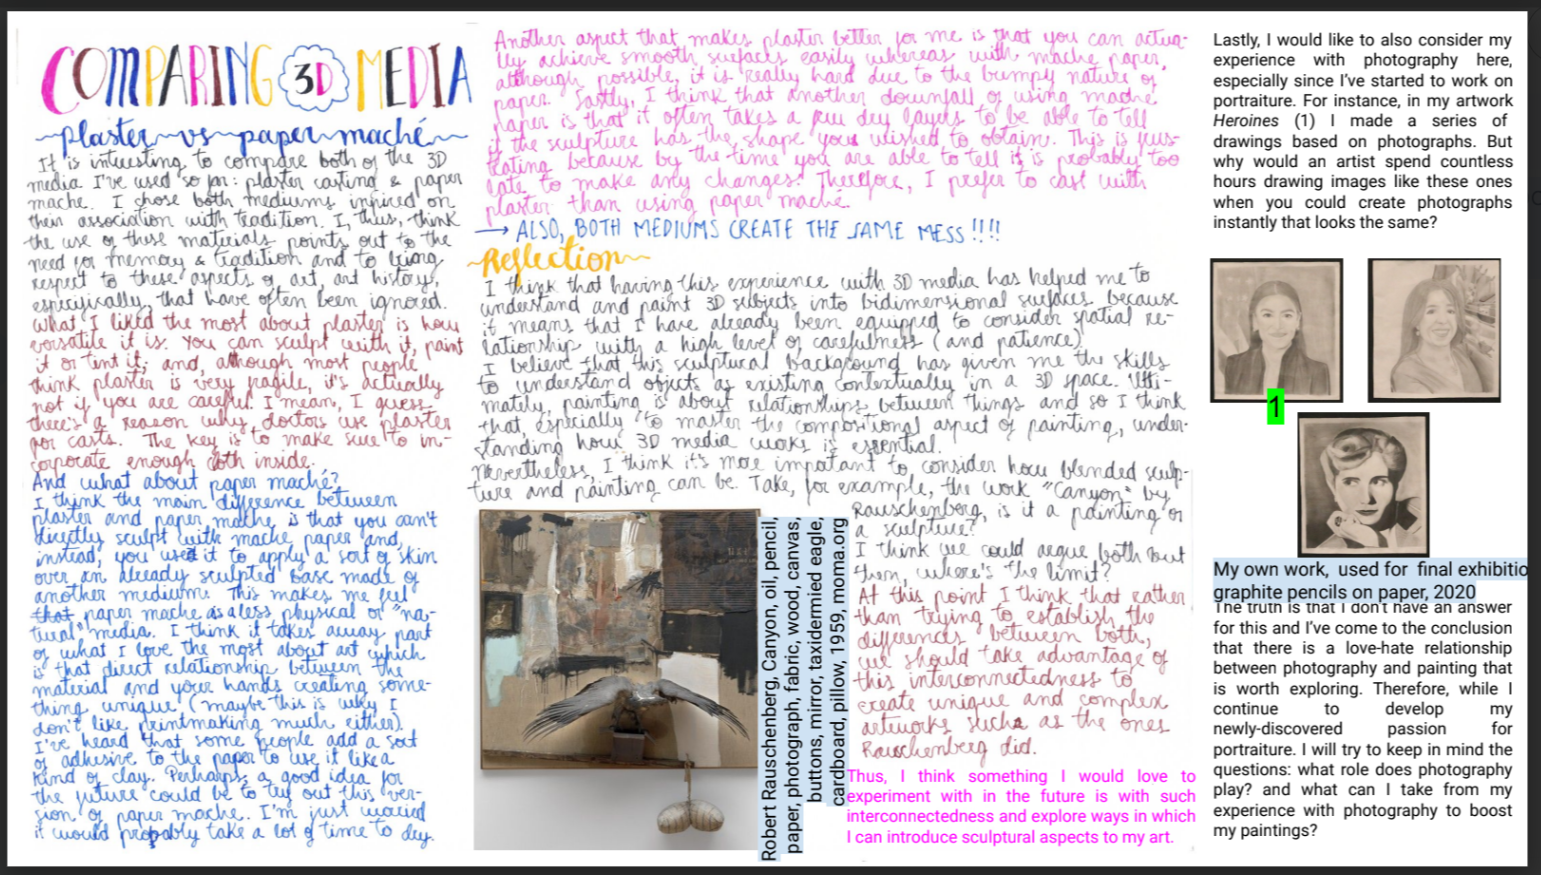 COMPARING 3D MEDIA
plaster vs paper maché
It is interesting to compare both of the 3D
media I've used so far: plaster casting & paper
mache. I chose both mediums inspired on
their association with tradition. I, thus, think
the use of these materials points out to the
need for memory & tradition and to bring
respect to these aspects of art, art history,
especifically, that have often been ignored.
What I liked the most about plaster is how
versatile it is. You can sculpt with it, paint
it or tint it; and, although most people
think plaster is very fragile, it's actually
not if you are careful. I mean, I guess
there's a reason why doctors use plaster
for casts. The key is to make sure to in-
corporate enough cloth inside.
And what about paper maché?
I think the main difference between
plaster and paper mache is that you can't
directly sculpt with mache paper and,
instead, you used it to apply a sort of skin
over an already sculpted base made of
another medium. This makes me feel
that paper mache is a less physical or "na-
tural" media. I think it takes away part
of what I love the most about art which
is that direct relationship between the
material and your hands creating some-
thing unique (maybe this is why I
don't like printmaking much either).
I've heard that some people add a sort
of adhesive to the paper to use it like a
kind of clay. Perhaps, a good idea for
the future could be to try out this ver-
sion of paper mache. I'm just worried
it would probably take a lot of time to dry.
Another aspect that makes plaster better for me is that you can actua-
lly achieve smooth surfaces easily whereas with mache paper,
although possible, it is really hard due to the bumpy nature of
paper. Lastly, I think that another downfall of using mache
paper is that it often takes a few dry layers to be able to tell
if the sculpture has the shape you wished to obtain. This is frus-
trating because by the time you are able to tell it is probably too
late to make any changes! Therefore, I prefer to cast with
plaster than using paper mache.
→ ALSO, BOTH MEDIUMS CREATE THE SAME MESS!!!!
Reflection
I think that having this experience with 3D media has helped me to
understand and paint 3D subjects into bidimensional surfaces because
it means that I have already been equipped to consider spatial re-
lationship with a high level of carefulness (and patience).
I believe that this sculptural background has given me the skills
to understand objects as existing contextually in a 3D space. Ulti-
mately, painting is about relationships between things and so I think
that, especially to master the compositional aspect of painting, under-
standing how 3D media works is essential.
Nevertheless, I think it's more important to consider how blended sculp-
ture and painting can be. Take, for example, the work "Canyon" by
Rauschenberg, is it a painting or
a sculpture?
I think we could argue both but
then, where's the limit?
At this point I think that rather
than trying to establish the
differences between both,
we should take advantage of
this interconnectedness to
create unique and complex
artworks such as the ones
Rauschenberg did.
Robert Rauschenberg, Canyon, oil, pencil,
paper, photograph, fabric, wood, canvas,
buttons, mirror, taxidermied eagle,
cardboard, pillow, 1959, moma.org
Thus, I think something I would love to
experiment with in the future is with such
interconnectedness and explore ways in which
I can introduce sculptural aspects to my art.
Lastly, I would like to also consider my
experience with photography here,
especially since I've started to work on
portraiture. For instance, in my artwork
Heroines (1) I made a series of
drawings based on photographs. But
why would an artist spend countless
hours drawing images like these ones
when you could create photographs
instantly that looks the same?
1
My own work, used for final exhibitio
graphite pencils on paper, 2020
The truth is that I don't have an answer
for this and I've come to the conclusion
that there is a love-hate relationship
between photography and painting that
is worth exploring. Therefore, while I
continue to develop my
newly-discovered passion for
portraiture. I will try to keep in mind the
questions: what role does photography
play? and what can I take from my
experience with photography to boost
my paintings?